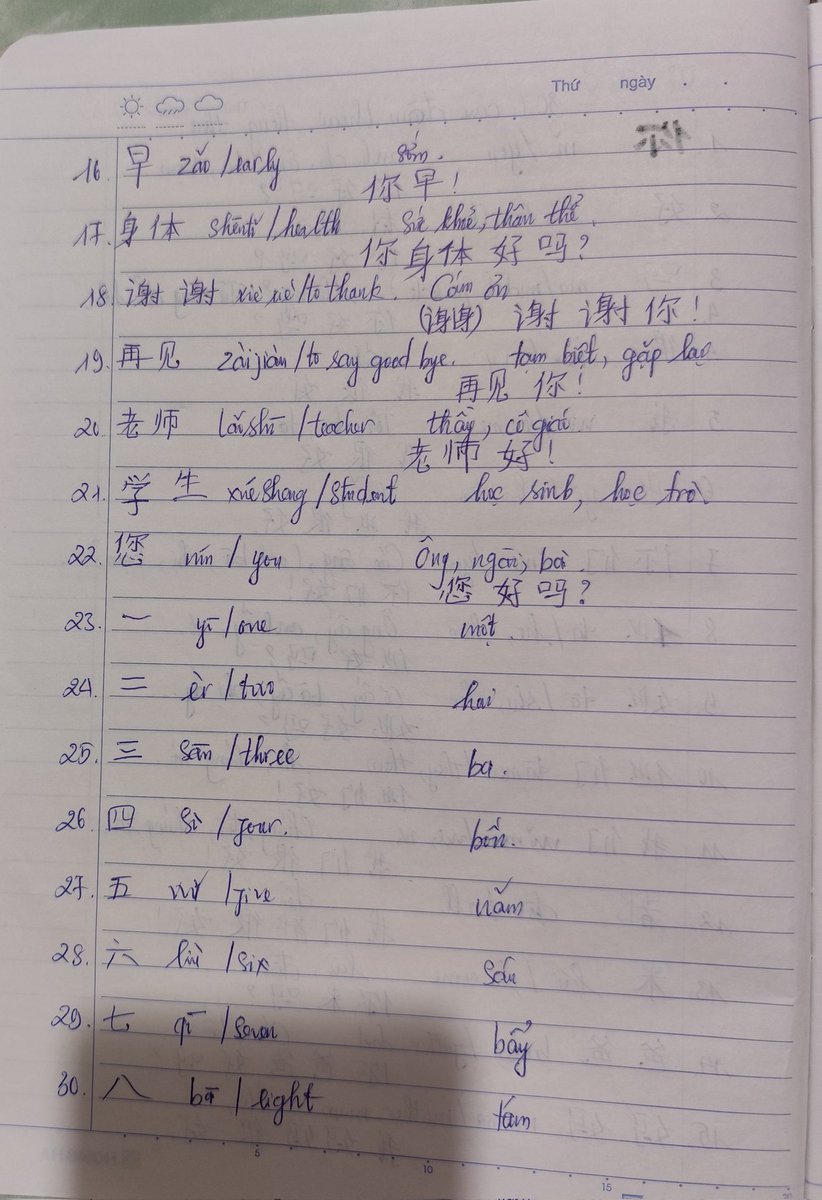 Thứ ngày . .
你
16. 早 zǎo /early sớm.
你早!
17. 身体 shēntǐ /health sức khoẻ, thân thể.
你身体好吗?
18. 谢谢 xiè xiè /to thank. Cám ơn
(谢谢) 谢谢你!
19. 再见 zàijiàn /to say good bye. tạm biệt, gặp lại
再见你!
20 老师 lǎoshī /teacher thầy, cô giáo
老师好!
21. 学生 xuéshang /student học sinh, học trò.
22. 您 nín / you Ông, ngài, bà.
您好吗?
23. 一 yī /one một.
24. 二 èr /two hai
25. 三 sān /three ba.
26. 四 sì /four. bốn.
27. 五 wǔ /five năm
28. 六 liù /six sáu
29. 七 qī /seven bẩy
30. 八 bā / eight tám
5 10 15 20